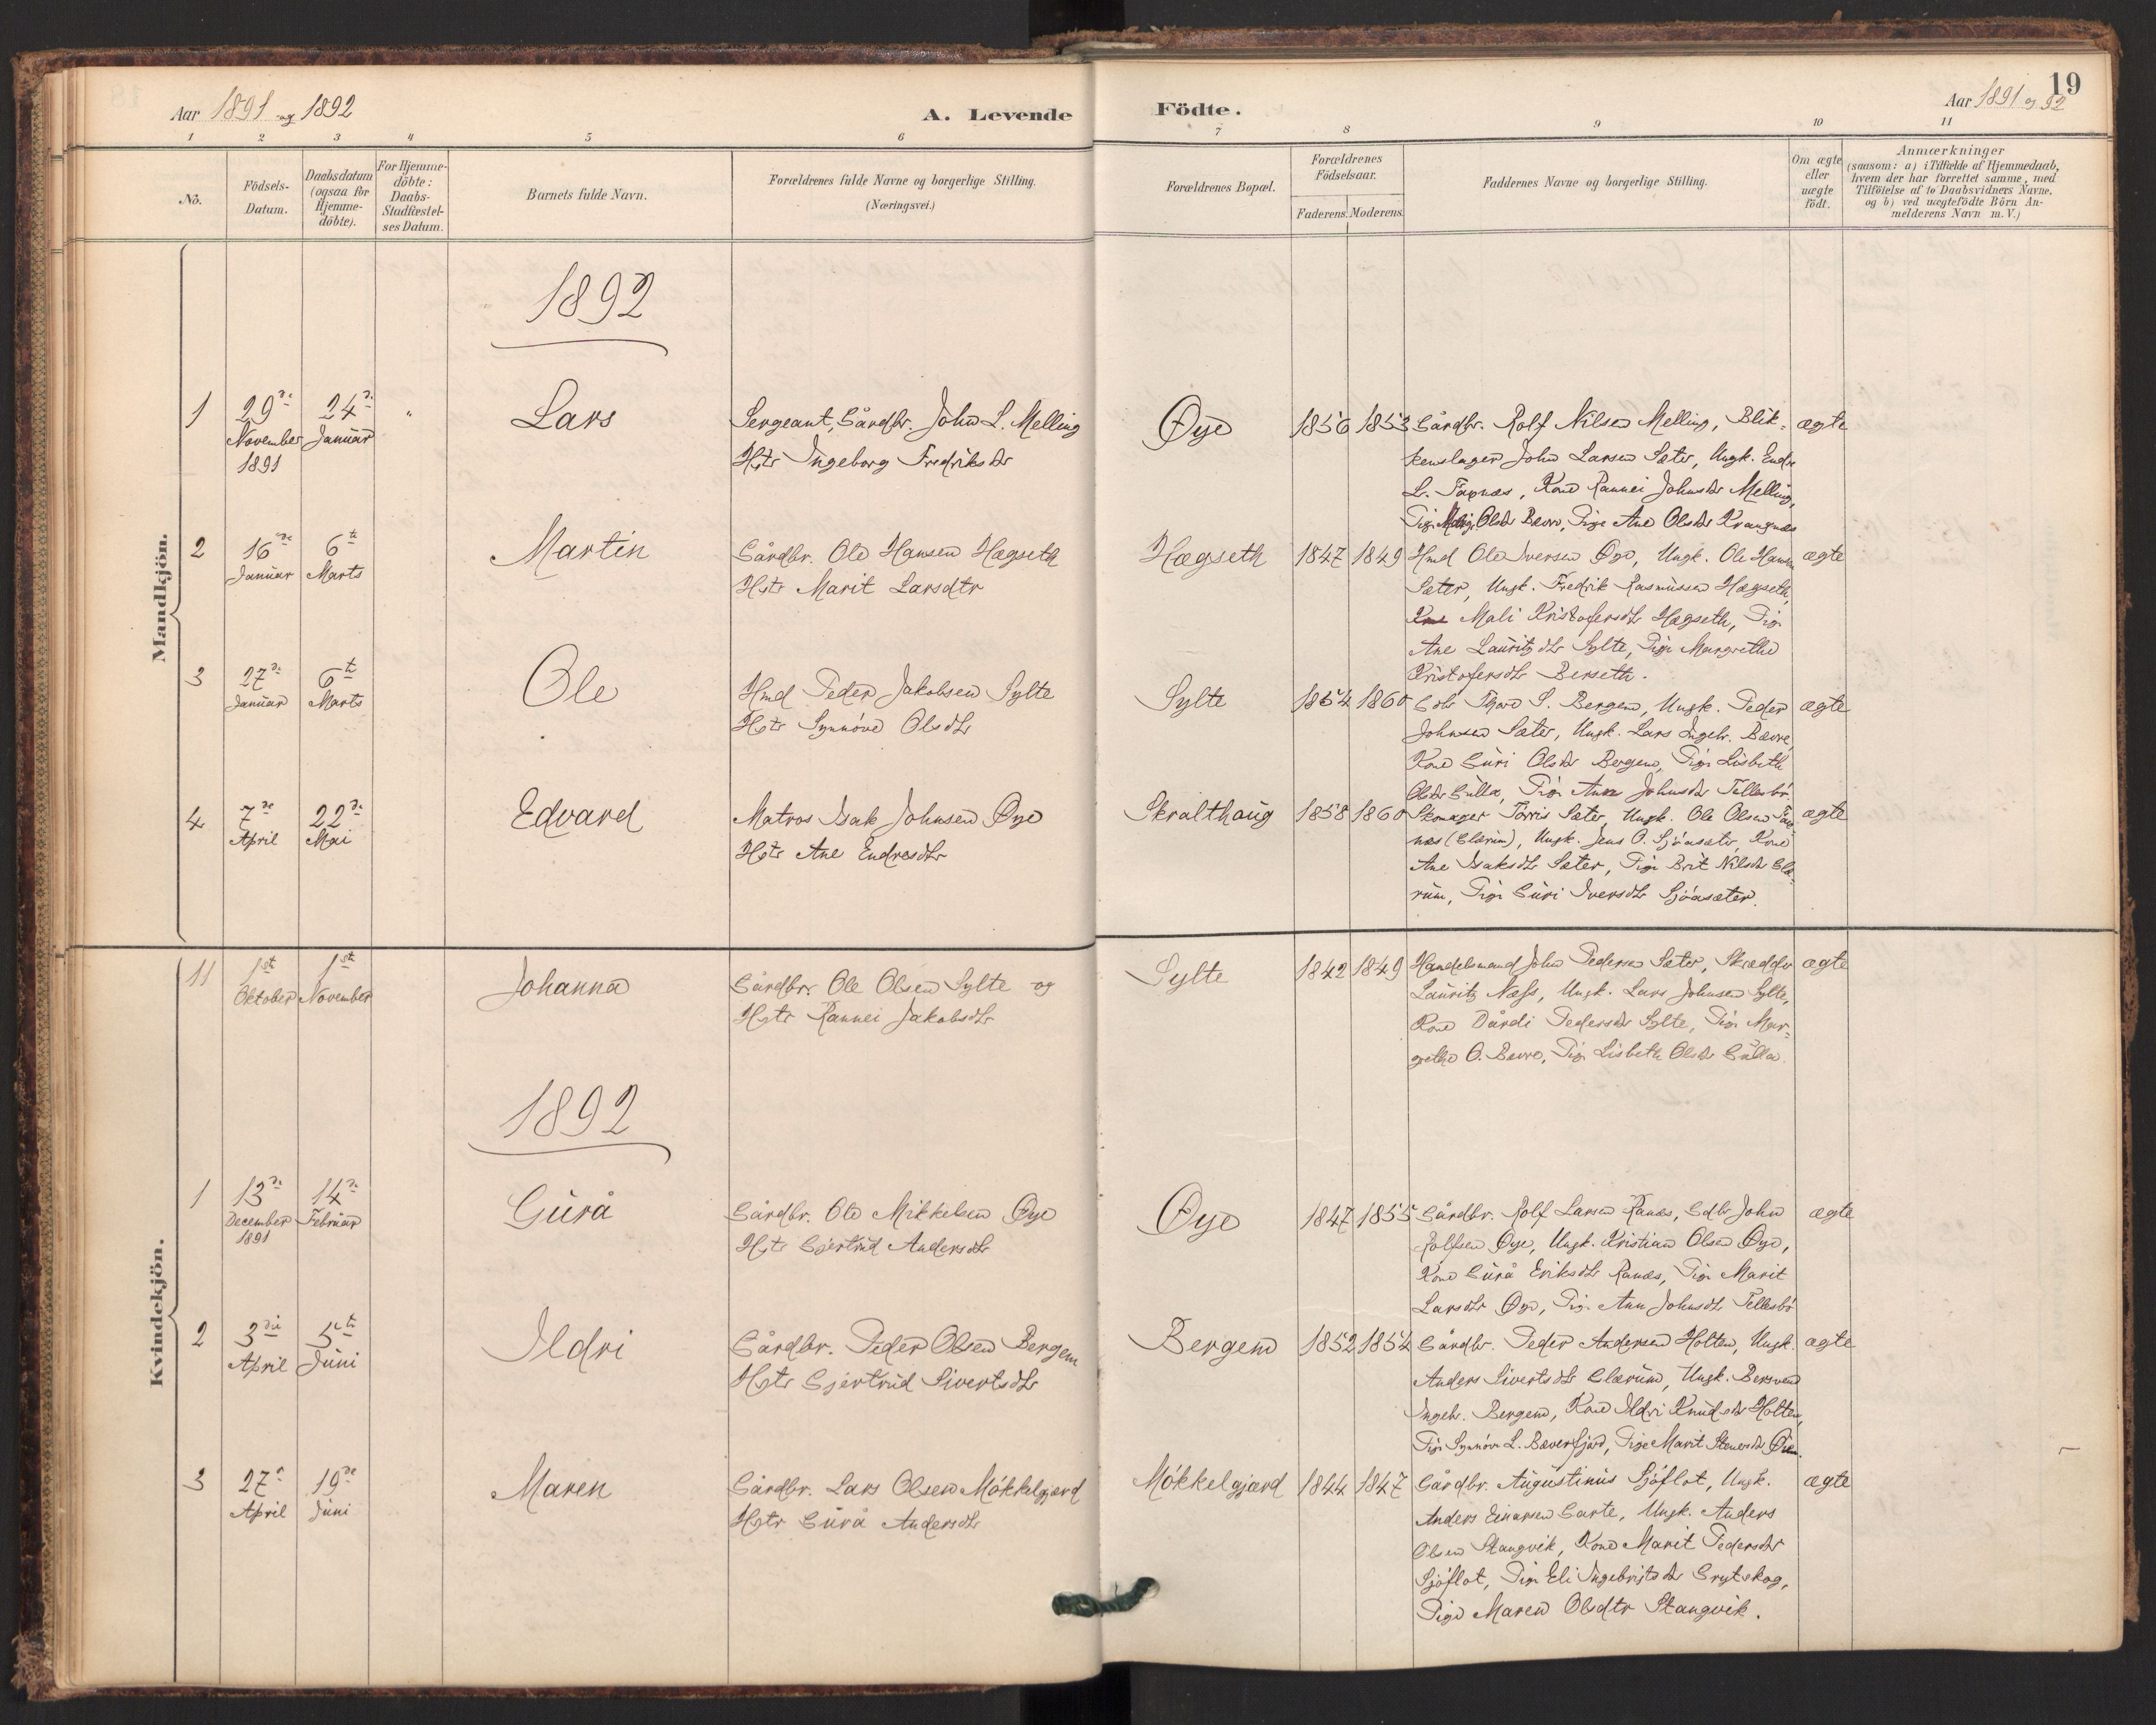 Aar 1891 og 1892
A. Levende
Födte.
Aar 1891 og 92
19
1 2 3 4 5 6 7 8 9 10 11
No.
Födsels-
Datum.
Daabsdatum
(ogsaa for
Hjemme-
döbte).
For Hjemme-
döbte:
Daabs-
Stadfæstel-
ses Datum.
Barnets fulde Navn.
Forældrenes fulde Navne og borgerlige Stilling.
(Næringsvei.)
Forældrenes Bopæl.
Forældrenes
Födselsaar.
Faderens. Moderens.
Faddernes Navne og borgerlige Stilling.
Om ægte
eller
uægte
födt.
Anmærkninger
(saasom: a) i Tilfælde af Hjemmedaab,
hvem der har forrettet samme, med
Tilföielse af to Daabsvidners Navne,
og b) ved uægtefödte Börn An-
melderens Navn m. V.)
Mandkjön.
1892
1
29de
November
1891
24de
Januar
"
Lars
Sergeant, Gårdbr. John L. Melling
Hstr Ingeborg Fredriksdr
Øye
1856 1853
Gårdbr. Rolf Nilsen Melling, Blik-
kenslager John Larsen Sæter, Ungk. Endre
L. Tapnæs, Kone Rannei Johnsdr Melling,
Pige Olsdr Bævre, Pige Ane Olsdr Krangnæs
ægte
2
16de
Januar
6te
Marts
Martin
Gårdbr. Ole Hansen Hægseth
Hstr Marit Larsdtr
Hægseth
1847 1849
Hmd Ole Iversen Øye, Ungk. Ole Hansen
Sæter, Ungk. Fredrik Rasmussen Hægseth,
Kone Mali Kristofersdtr Hægseth, Pige
Ane Lauritzdtr Sylte, Pige Margrethe
Kristofersdtr Berseth.
ægte
3
27de
Januar
6te
Marts
Ole
Hmd Peder Jakobsen Sylte
Hstr Synnöve Olsdtr
Sylte
1854 1860
Gdbr S. Bergem, Ungk. Peder
Johnsen Sæter, Ungk. Lars Ingebr. Bævre,
Kone Guri Olsdr Bergem, Pige Lisbeth
Olsdr Gulla, Pige Ane Johnsdr Tellesbö.
ægte
4
7de
April
22de
Mai
Edvard
Matros Isak Johnsen Øye
Hstr Ane Endresdtr
Skralthaug
1858 1860
Skomager Torris Sæter, Ungk. Ole Olsen Tap-
næs (Glærum), Ungk. Jens O. Sjöasæter, Kone
Ane Isaksdtr Sæter, Pige Brit Nilsdr Glæ-
rum, Pige Guri Iversdtr Sjöasæter.
ægte
Kvindekjön.
11
1st
Oktober
1st
November
Johanna
Gårdbr. Ole Olsen Sylte og
Hstr Rannei Jakobsdtr
Sylte
1842 1849
Handelsmand John Pedersen Sæter, Skrædder
Lauritz Næss, Ungk. Lars Johnsen Sylte,
Kone Dårdi Pedersdr Sylte, Pige Mar-
grethe O. Bævre, Pige Lisbeth Olsdr Gulla.
ægte
1892
1
13de
December
1891
14de
Februar
Gurå
Gårdbr. Ole Mikkelsen Øye
Hstr Gjertrud Andersdtr
Øye
1847 1855
Gårdbr. Rolf Larsen Ranæs, Gdbr John
Rolfsen Øye, Ungk. Kristian Olsen Øye,
Kone Gurå Eriksdtr Ranæs, Pige Marit
Larsdtr Øye, Pige Ane Johnsdtr Tellesbö
ægte
2
3die
April
5te
Juni
Ildri
Gårdbr. Peder Olsen Bergem
Hstr Gjertrud Sivertsdtr
Bergem
1852 1854
Gårdbr. Peder Andersen Holten, Ungk.
Anders Sivertsdtr Glærum, Ungk. Bersvend
Ingebr. Bergem, Kone Ildri Knudsdr Holten,
Pige Synnöve L. Bæverfjord, Pige Marit Stenersdr Øien.
ægte
3
27de
April
19de
Juni
Maren
Gårdbr. Lars Olsen Mökkelgjærd
Hstr Gurå Andersdtr
Mökkelgjærd
1844 1847
Gårdbr. Augustinus Sjöflot, Ungk.
Anders Einarsen Garte, Ungk. Anders
Olsen Stangvik, Kone Marit Pedersdr
Sjöflot, Pige Eli Ingebrigtsdr Grytskog,
Pige Maren Olsdtr Stangvik.
ægte